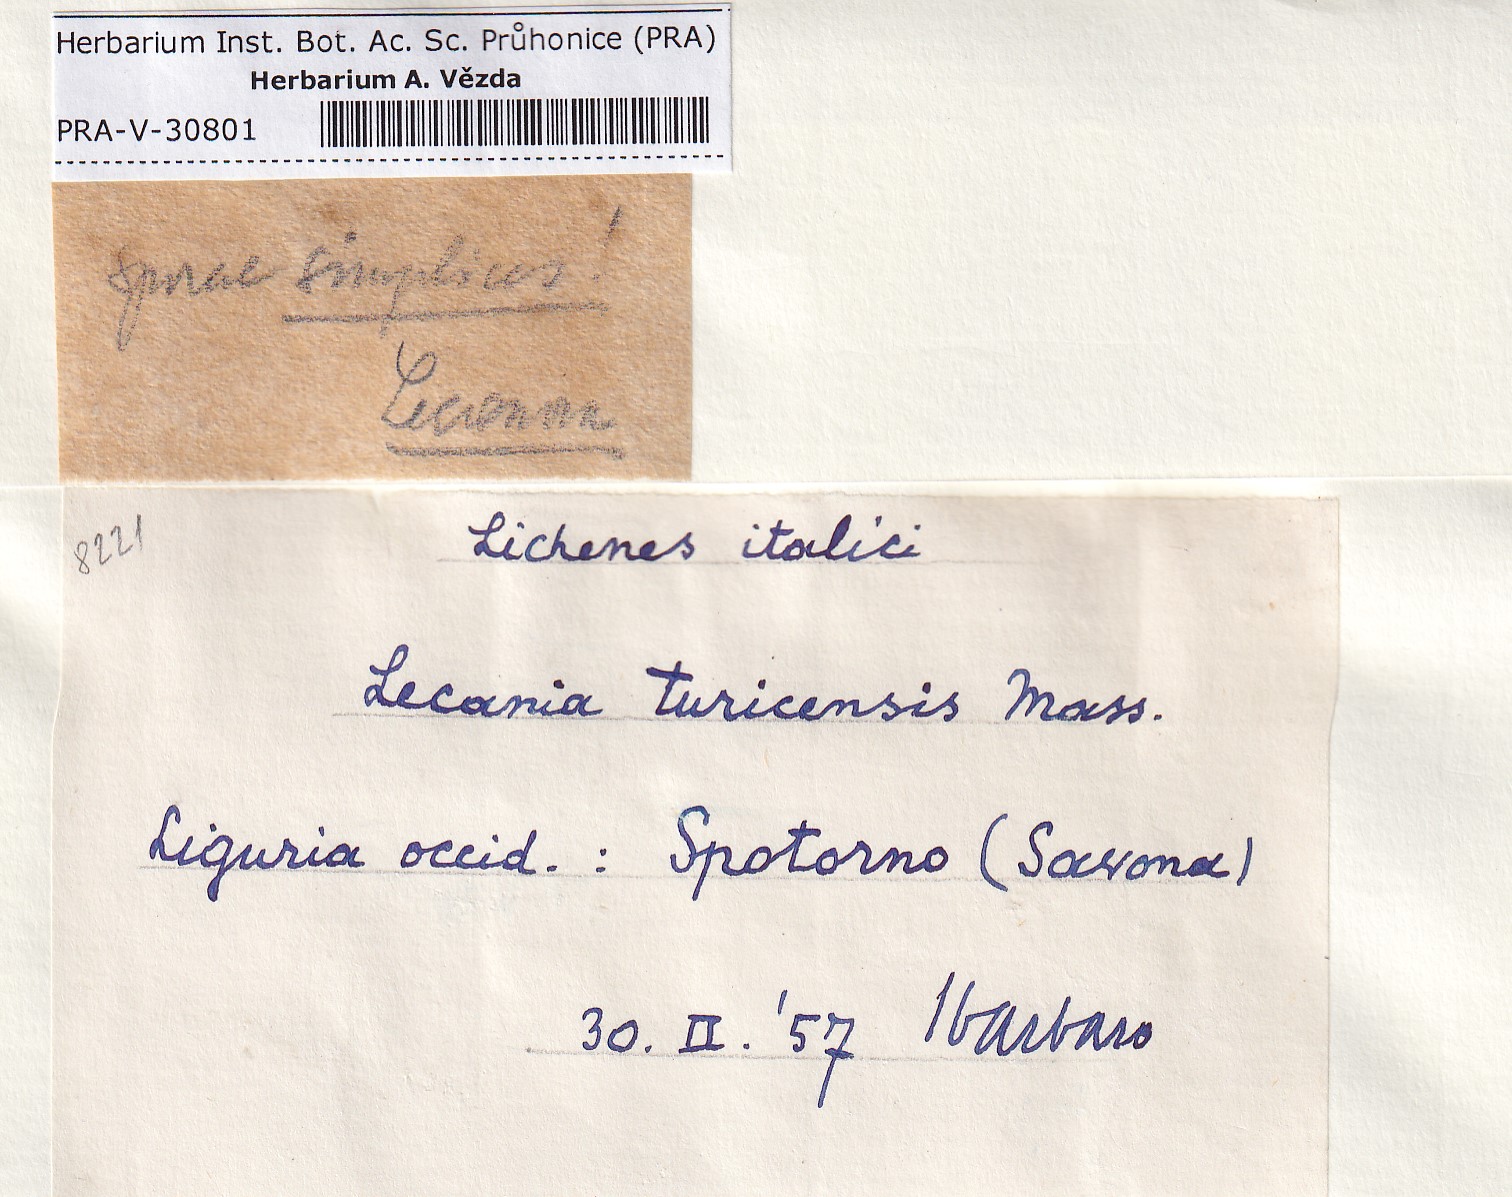 Herbarium Inst. Bot. Ac. Sc. Průhonice (PRA)
Herbarium A. Vězda
PRA-V-30801
sporae simplices!
Lecanora
8221
Lichenes italici
Lecania turicensis Mass.
Liguria occid. : Spotorno (Savona)
30. II. '57 Sbarbaro